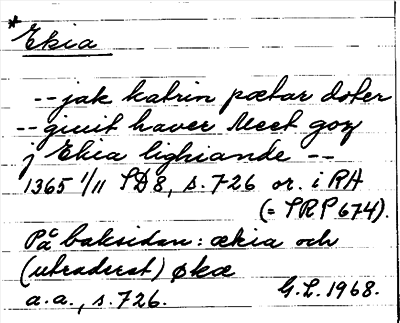 *
Ekia
-- jak katrin pætar doter
-- giuit haver Meet goz
j Ekia lighiande --
1365 1/11 SD 8, s. 726 or. i RA
(= SRP 674).
På baksidan: ækia och
(utraderat) økæ
a.a., s. 726. G.L. 1968.